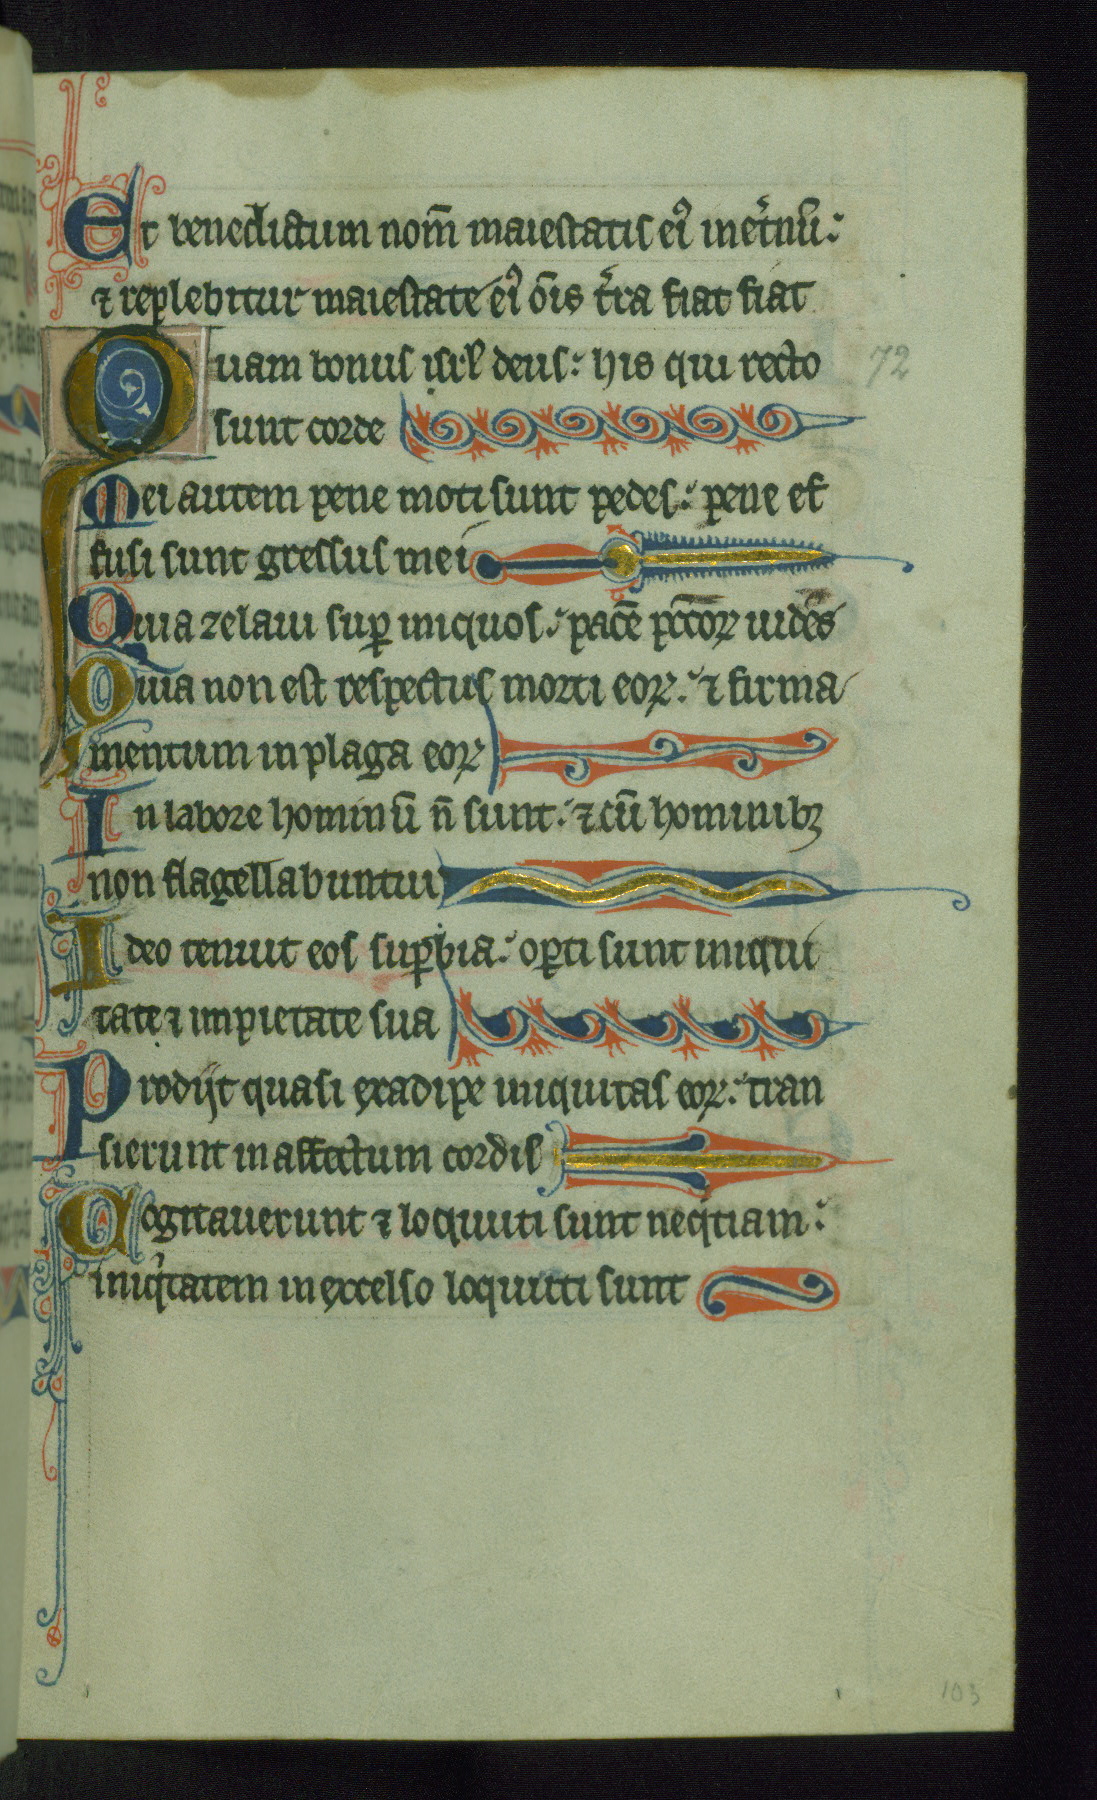 Et benedictum nom̄ maiestatis ei᷒ inet̾nū:
⁊ replebitur maiestate ei᷒ om̄is t̾ra fiat fiat
Quam bonus isrl̄ deus: his qui recto 72
sunt corde
Mei autem pene moti sunt pedes: pene ef
fusi sunt gressus mei
Quia zelaui suꝑ iniquos: pacē pcc̄oꝝ uidēs
Quia non est respectus morti eoꝝ: ⁊ firma
mentum in plaga eoꝝ
In labore hominū n̄ sunt: ⁊ cū hominibꝫ
non flagellabuntur
Ideo tenuit eos suꝑbia: oꝑti sunt iniqui
tate ⁊ impietate sua
Prodijt quasi ex adipe iniquitas eoꝝ: tran
sierunt in affectum cordis
Cogitauerunt ⁊ loquuti sunt neqͥtiam:
iniqͥtatem in excelso loquuti sunt
103